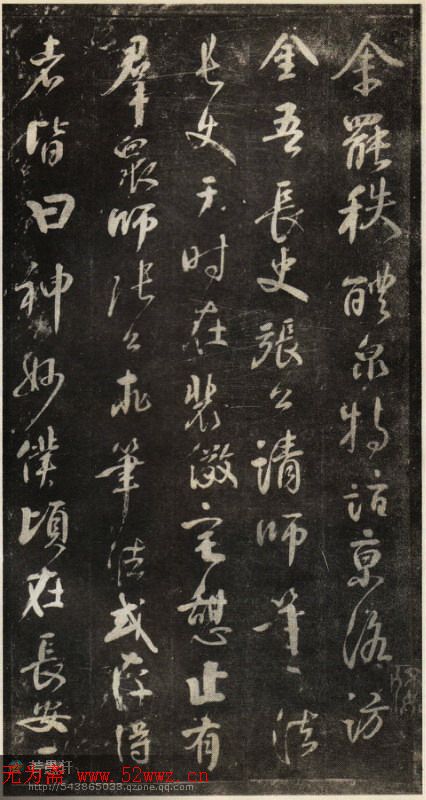 余罷秩醴泉特詣京洛訪
金吾長史張公請師筆法
長史于时在裴儆宅憩止有
羣眾師張公求筆法或存得
者皆曰神妙僕頃在長安
无为斋 www.52wwz.cn
http://543865033.qzone.qq.com